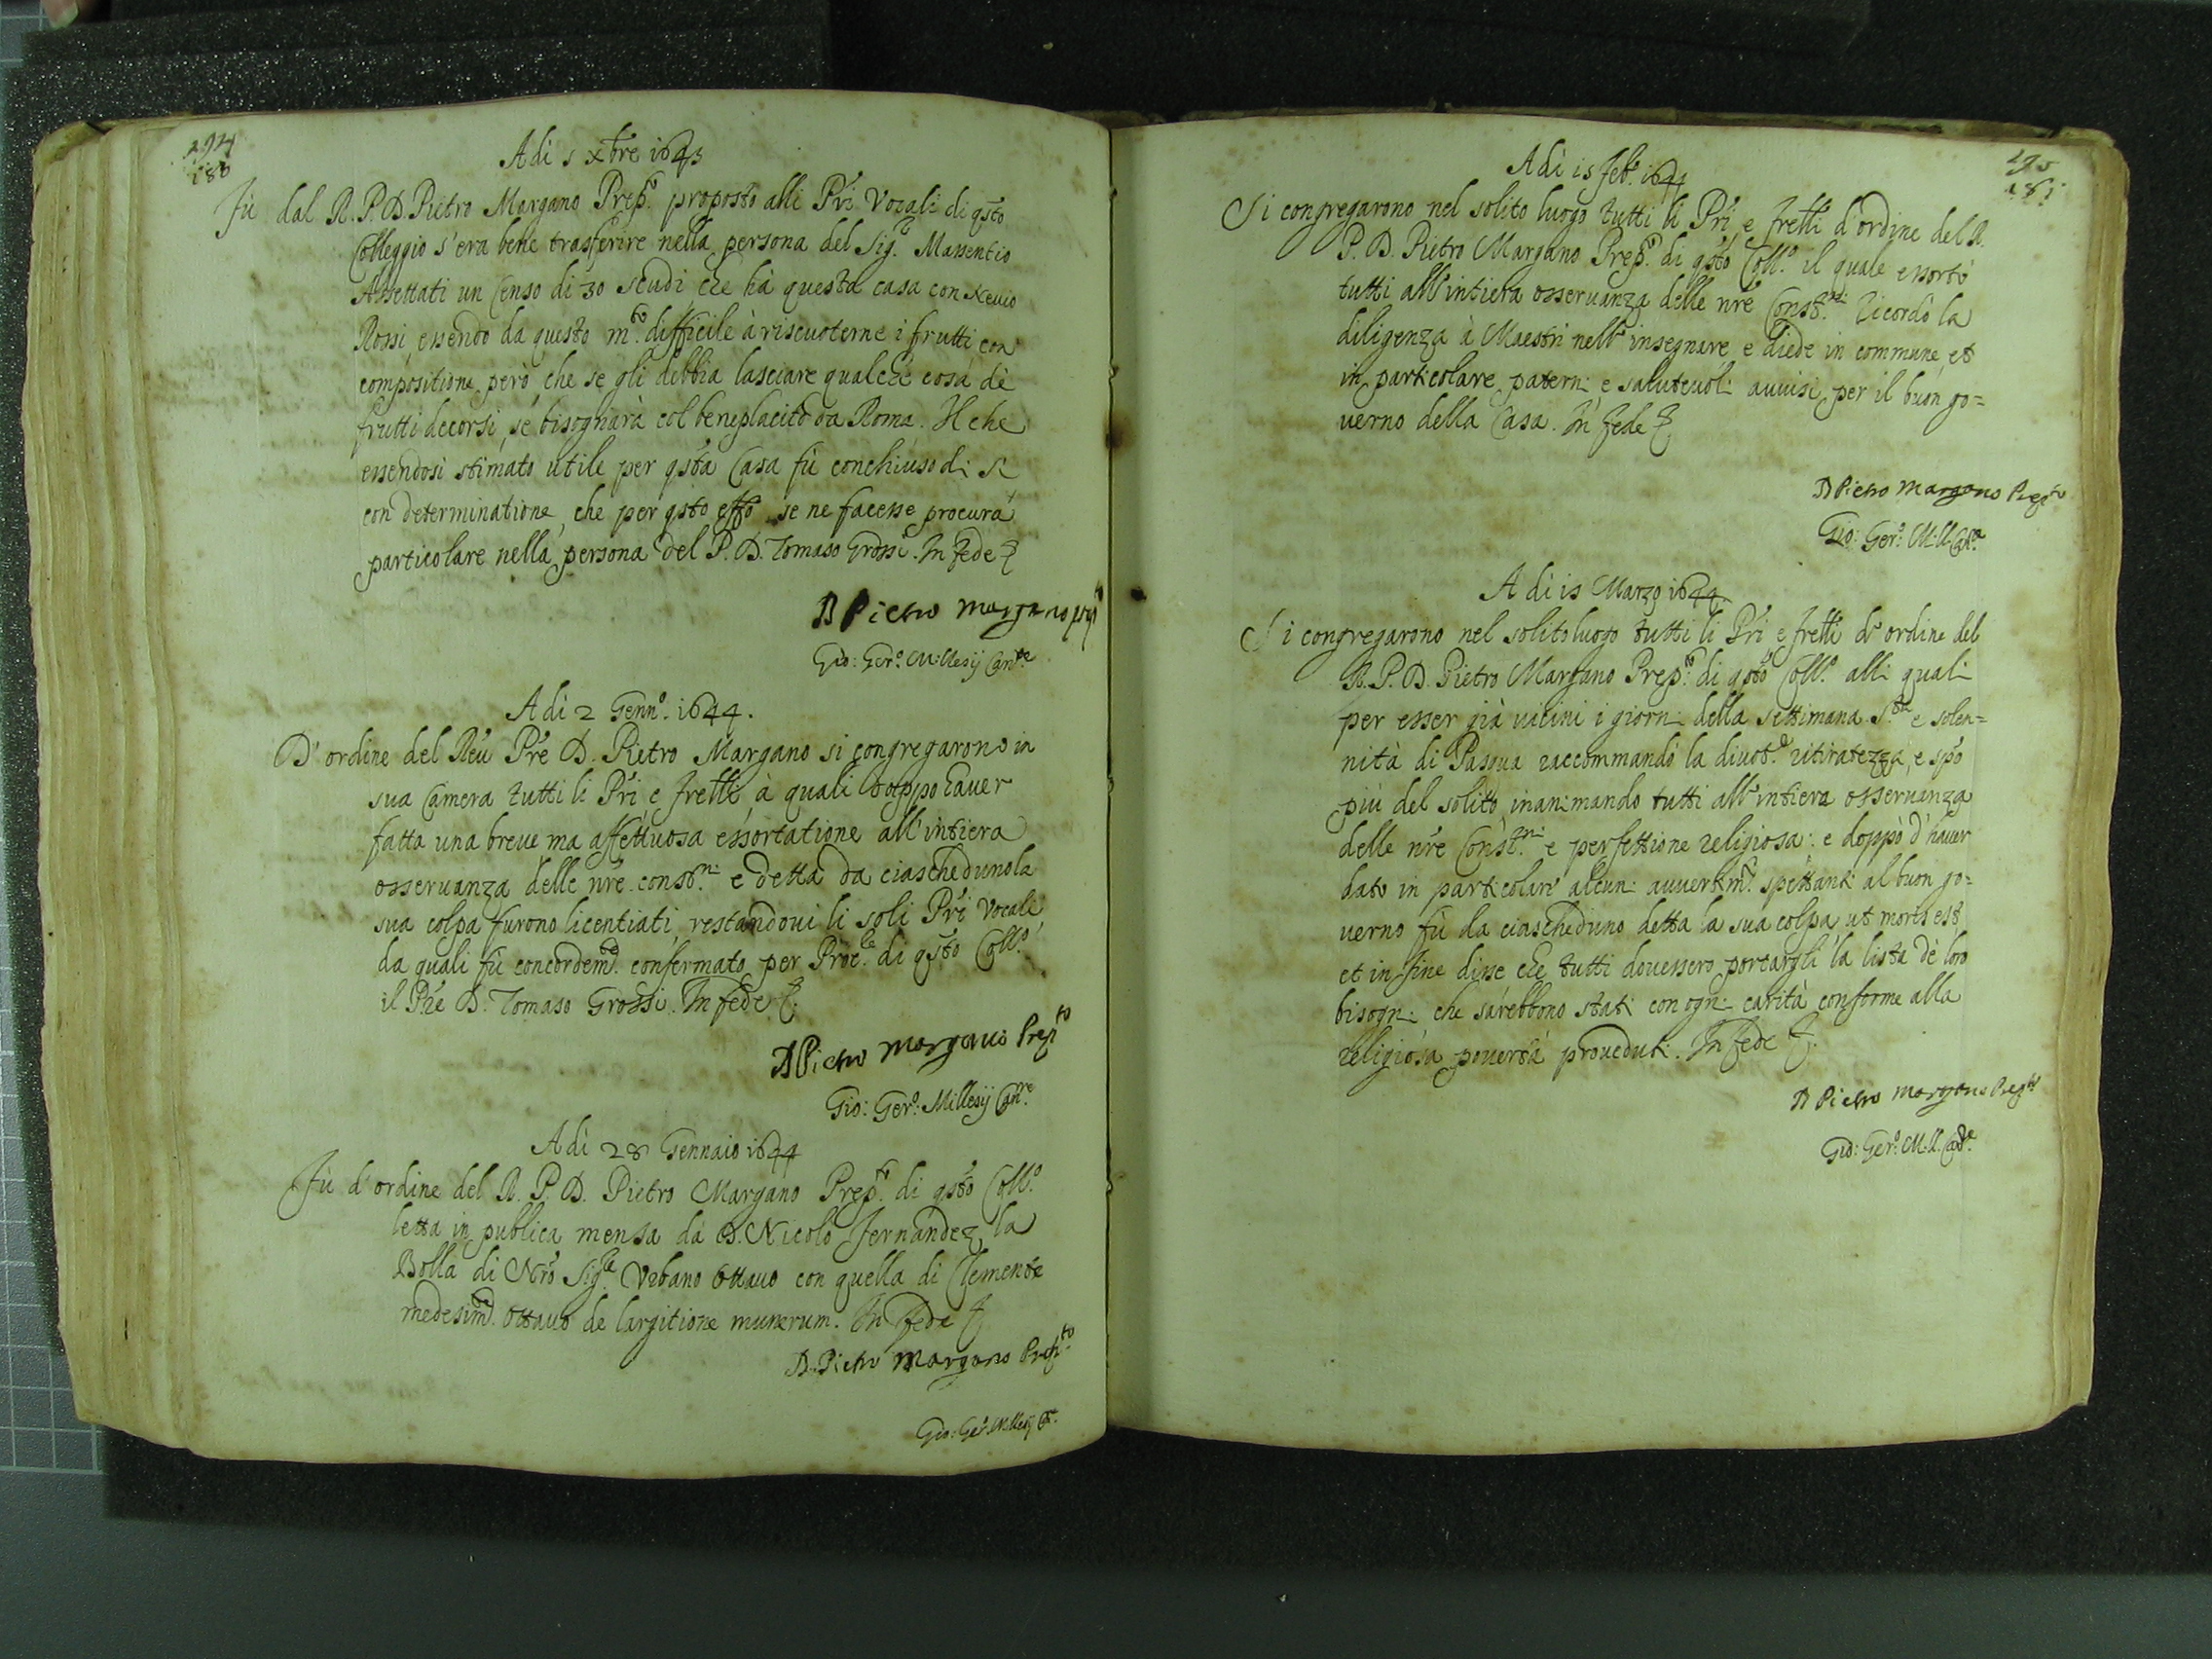 294
180
Adi 5 xbre 1643
Fù dal R. P. D. Pietro Margano Prep.to proposto alli Pri Vocali di qsto
Colleggio s'era bene trasferire nella persona del Sig.r Massentio
Assettati un Censo di 30 scudi che hà questa casa con
Rossi, essendo da questo m.to difficile à riscuoterne i frutti con
compositione però che se gli debbia lasciare qualche cosa dè
frutti decorsi, se bisognarà col beneplacito da Roma. Il che
essendosi stimato utile per qsta Casa fù conchiuso di si
con determinatione, che per qsto effo se ne facesse procura
particolare nella persona del P. D. Tomaso Grossi. In fede &
D Pietro Margano prep.to
Gio: Ger.o Millesij Canre
Adi 2 Genn.o 1644.
D'ordine del Reu Pre D. Pietro Margano si congregarono in
sua Camera tutti li Pri e frelli à quali doppo hauer
fatta una breue ma affettuosa essortatione all'intiera
osseruanza delle nre const.ni e detta da ciaschedunola
sua colpa furono licentiati, restandoui li soli Pri Vocali
da quali fù concordem.te confermato per Proc.le di qsto Coll.o
il Pre D. Tomaso Grossi. In fede &.
D Pietro Margano Prep.to
Gio: Ger.o: Millesij Can.re
Adi 28 Gennaio 1644
Fù d'ordine del R. P. D. Pietro Margano Prep.to di qsto Coll.o
letta in publica mensa da D. Nicolò Fernandez la
Bolla di Nro Sig.re Vrbano Ottauo con quella di Clemente
medesim.te Ottauo de largitione munerum. In fede &
D. Pietro Margano Prep.to
Gio: Ger.o Millesij C.re
295
181
Adi 15 Feb.o 1644
Si congregarono nel solito luogo tutti li Pri, e frelli d'ordine del R.
P. D. Pietro Margano Prep.to di qsto Coll.o il quale essortò
tutti all'intiera osseruanza delle nre Const.ni: ricordò la
diligenza à Maestri nell'insegnare e diede in commune, et
in particolare paterni e saluteuoli auuisi per il buon go=
uerno della Casa. In fede &
D Pietro Margano Prep.to
Gio: Ger.o: Mill. Can.re
Adi 15 Marzo 1644.
Si congregarono nel solito luogo tutti li Pri e frelli d'ordine del
R. P. D. Pietro Margano Prep.to di qsto Coll.o alli quali
per esser già uicini i giorni della settimana S.ta e solen=
nità di Pasqua raccommandò la diuot.e ritiratezza, e spo
più del solito, inanimando tutti all'intiera osseruanza
delle nre Const.ni e perfettione religiosa: e doppò d'hauer
dato in particolare alcuni auuertim.ti spettanti al buon go=
uerno fù da ciascheduno detta la sua colpa, ut moris est,
et in fine disse che tutti douessero portargli la lista dè loro
bisogni che sarebbono stati con ogni carità conforme alla
religiosa pouertà proueduti. In fede &.
D Pietro Margano Prep.to
Gio: Ger.o Mill. Can.re